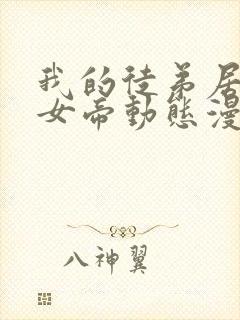 我的徒弟居
女帝動態漫
八神翼